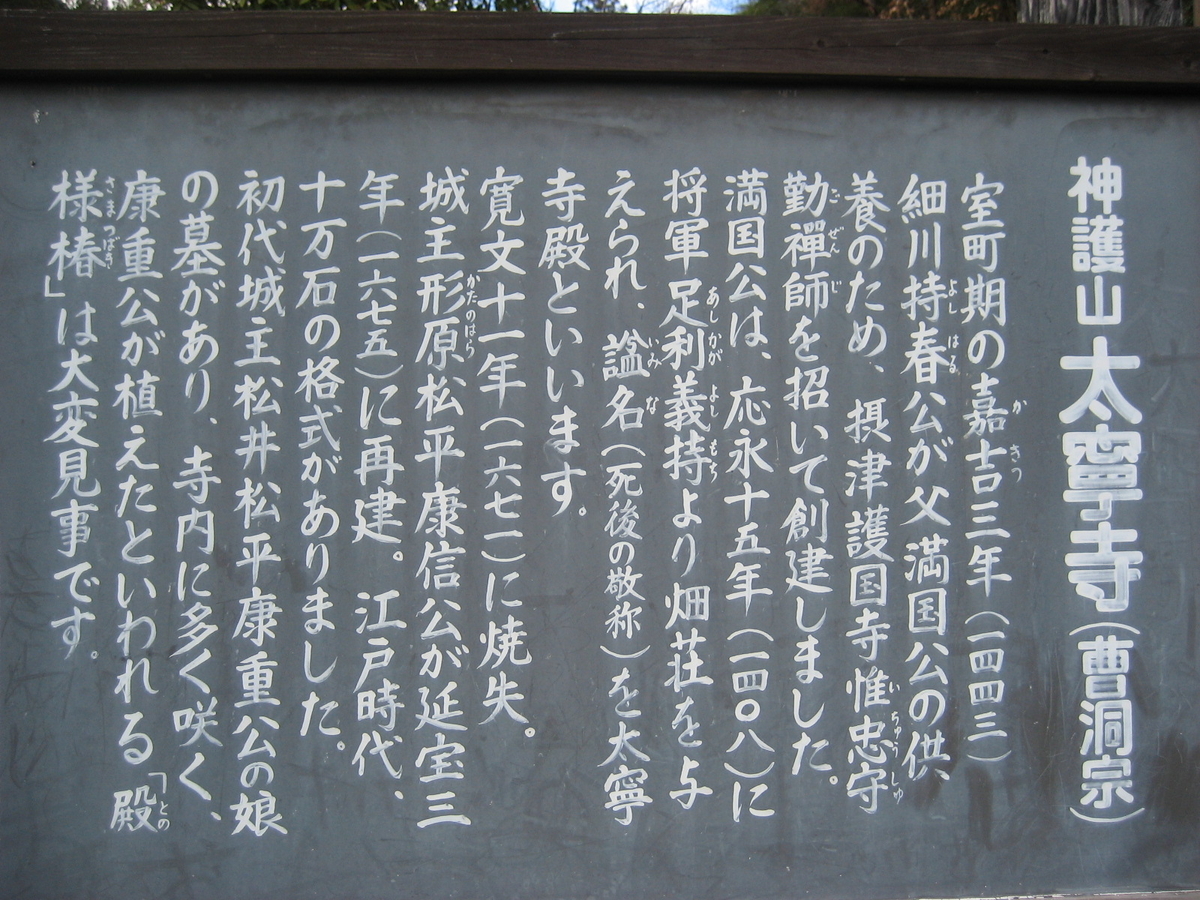 神護山 太寧寺（曹洞宗）
室町期の嘉吉三年（一四四三）
細川持春公が父満国公の供
養のため、摂津護国寺惟忠守
勤禪師を招いて創建しました。
満国公は、応永十五年（一四〇八）に
将軍足利義持より畑荘を与
えられ、謚名（死後の敬称）を太寧
寺殿といいます。
寛文十一年（一六七一）に焼失。
城主形原松平康信公が延宝三
年（一六七五）に再建。江戸時代、
十万石の格式がありました。
初代城主松井松平康重公の娘
の墓があり、寺内に多く咲く、
康重公が植えたといわれる「殿
様椿」は大変見事です。